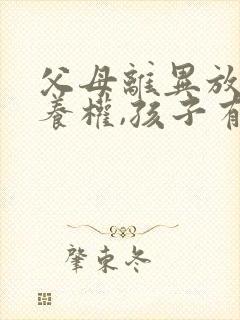 父母離異放
養權,孩子有
肇東冬